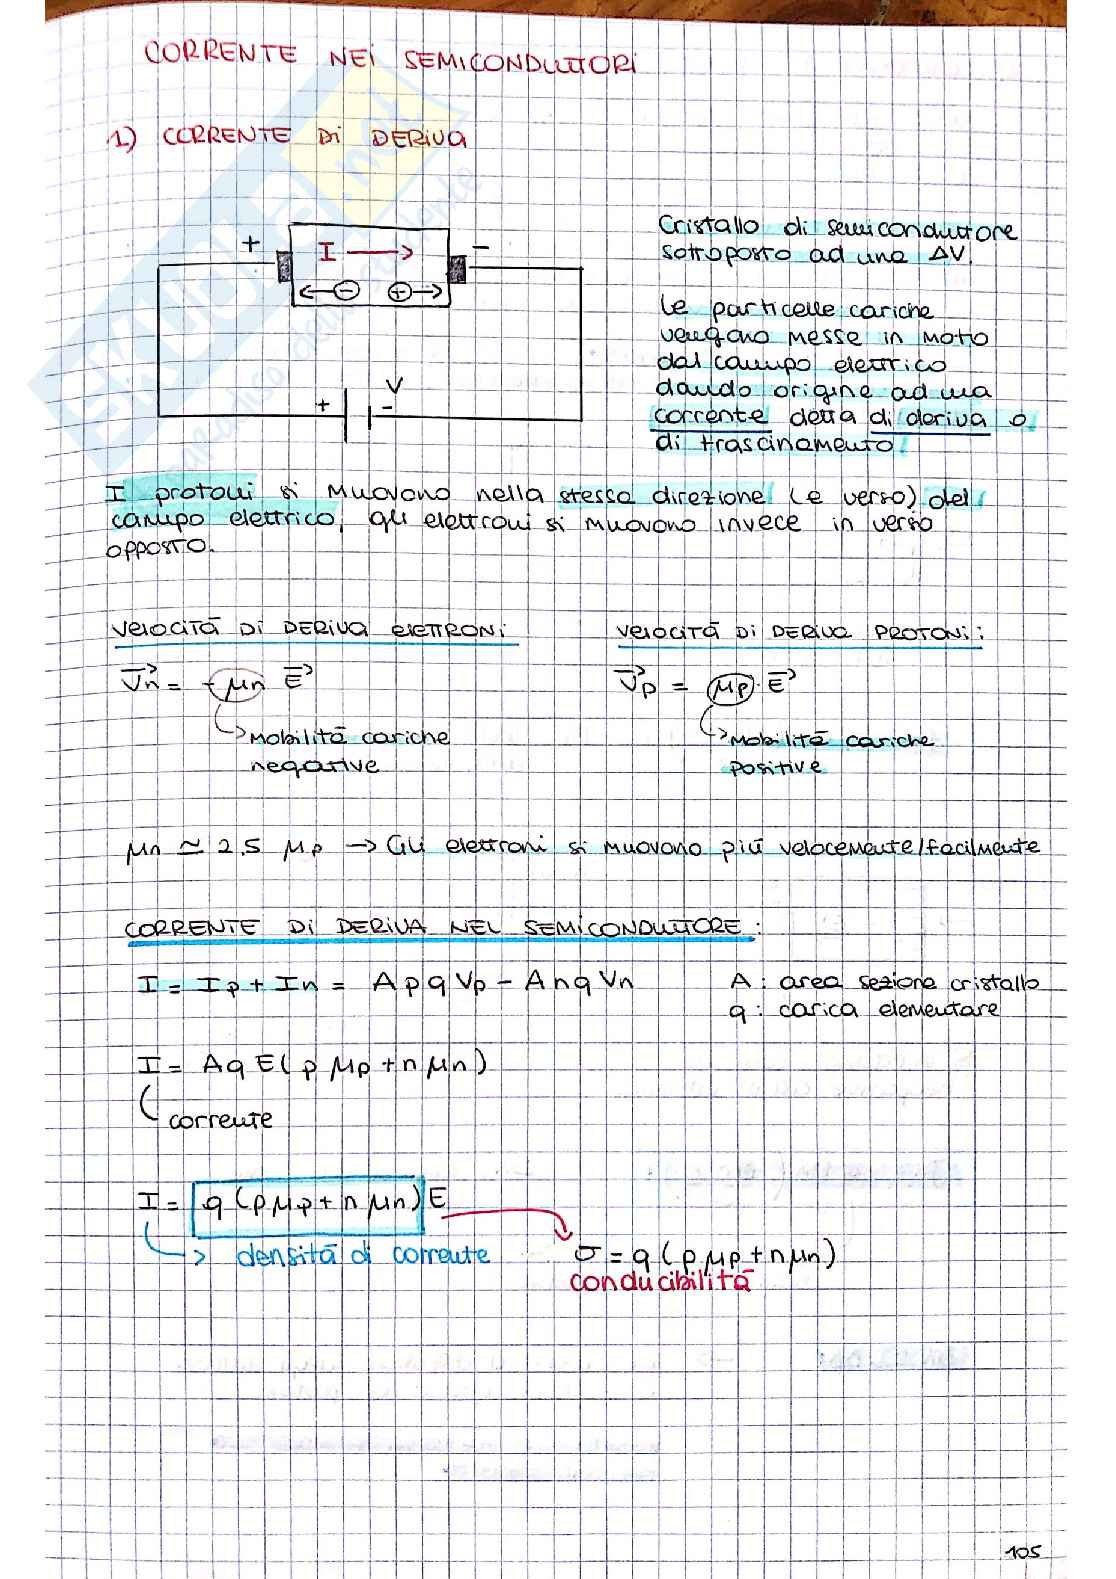 CORRENTE NEI SEMICONDUTTORI
1) CORRENTE DI DERIVA
+ I -
- +
V
+ -
Cristallo di semiconduttore
sottoposto ad una ΔV.
Le particelle cariche
vengono messe in moto
dal campo elettrico
dando origine ad una
corrente detta di deriva o
di trascinamento.
I protoni si muovono nella stessa direzione (e verso) del
campo elettrico, gli elettroni si muovono invece in verso
opposto.
VELOCITÀ DI DERIVA ELETTRONI:
Vn = -μn E
Mobilità cariche
negative
VELOCITÀ DI DERIVA PROTONI:
Vp = μp · E
Mobilità cariche
positive
μn ≃ 2.5 μp → Gli elettroni si muovono più velocemente/facilmente
CORRENTE DI DERIVA NEL SEMICONDUTTORE:
I = Ip + In = A p q Vp - A n q Vn
A: area sezione cristallo
q: carica elementare
I = A q E ( p μp + n μn )
corrente
I = q ( p μp + n μn ) E
densità di corrente
σ = q ( p μp + n μn )
conducibilità
105